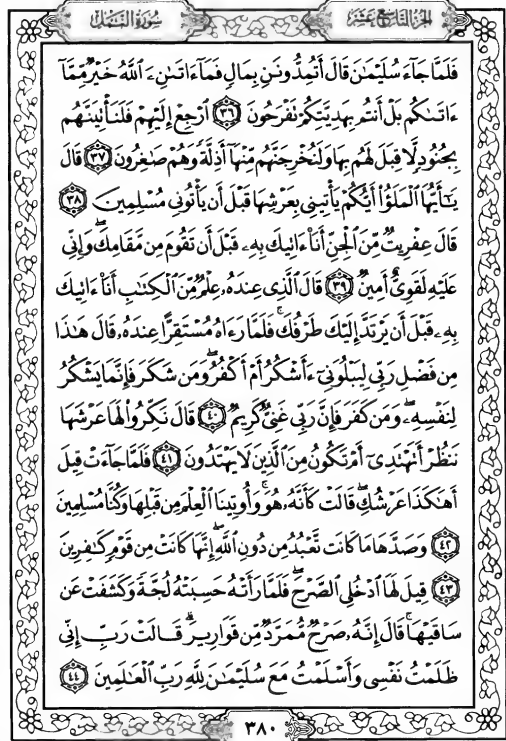 الجزء التاسع عشر سورة النمل
فَلَمَّا جَآءَ سُلَيْمَٰنَ قَالَ أَتُمِدُّونَنِ بِمَالٍ فَمَآ ءَاتَىٰنِۦَ ٱللَّهُ خَيْرٌ مِّمَّآ
ءَاتَىٰكُم بَلْ أَنتُم بِهَدِيَّتِكُمْ نَفْرَحُونَ ٣٦ ٱرْجِعْ إِلَيْهِمْ فَلَنَأْتِيَنَّهُم
بِجُنُودٍ لَّا قِبَلَ لَهُم بِهَا وَلَنُخْرِجَنَّهُم مِّنْهَآ أَذِلَّةً وَهُمْ صَٰغِرُونَ ٣٧ قَالَ
يَٰٓأَيُّهَا ٱلْمَلَؤُا۟ أَيُّكُمْ يَأْتِينِى بِعَرْشِهَا قَبْلَ أَن يَأْتُونِى مُسْلِمِينَ ٣٨
قَالَ عِفْرِيتٌ مِّنَ ٱلْجِنِّ أَنَا۠ ءَاتِيكَ بِهِۦ قَبْلَ أَن تَقُومَ مِن مَّقَامِكَ ۖ وَإِنِّى
عَلَيْهِ لَقَوِىٌّ أَمِينٌ ٣٩ قَالَ ٱلَّذِى عِندَهُۥ عِلْمٌ مِّنَ ٱلْكِتَٰبِ أَنَا۠ ءَاتِيكَ
بِهِۦ قَبْلَ أَن يَرْتَدَّ إِلَيْكَ طَرْفُكَ ۚ فَلَمَّا رَءَاهُ مُسْتَقِرًّا عِندَهُۥ قَالَ هَٰذَا
مِن فَضْلِ رَبِّى لِيَبْلُوَنِىٓ ءَأَشْكُرُ أَمْ أَكْفُرُ ۖ وَمَن شَكَرَ فَإِنَّمَا يَشْكُرُ
لِنَفْسِهِۦ ۖ وَمَن كَفَرَ فَإِنَّ رَبِّى غَنِىٌّ كَرِيمٌ ٤٠ قَالَ نَكِّرُوا۟ لَهَا عَرْشَهَا
نَنظُرْ أَتَهْتَدِىٓ أَمْ تَكُونُ مِنَ ٱلَّذِينَ لَا يَهْتَدُونَ ٤١ فَلَمَّا جَآءَتْ قِيلَ
أَهَٰكَذَا عَرْشُكِ ۖ قَالَتْ كَأَنَّهُۥ هُوَ ۚ وَأُوتِينَا ٱلْعِلْمَ مِن قَبْلِهَا وَكُنَّا مُسْلِمِينَ
٤٢ وَصَدَّهَا مَا كَانَت تَّعْبُدُ مِن دُونِ ٱللَّهِ ۖ إِنَّهَا كَانَتْ مِن قَوْمٍ كَٰفِرِينَ
٤٣ قِيلَ لَهَا ٱدْخُلِى ٱلصَّرْحَ ۖ فَلَمَّا رَأَتْهُ حَسِبَتْهُ لُجَّةً وَكَشَفَتْ عَن
سَاقَيْهَا ۚ قَالَ إِنَّهُۥ صَرْحٌ مُّمَرَّدٌ مِّن قَوَارِيرَ ۗ قَالَتْ رَبِّ إِنِّى
ظَلَمْتُ نَفْسِى وَأَسْلَمْتُ مَعَ سُلَيْمَٰنَ لِلَّهِ رَبِّ ٱلْعَٰلَمِينَ ٤٤
٣٨٠